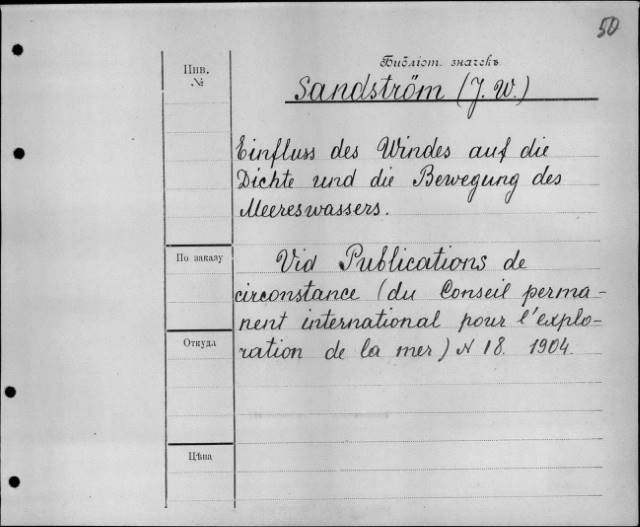 50
Инв.
№
Библіот. значекъ
Sandström (J. W.)
Einfluss des Windes auf die
Dichte und die Bewegung des
Meereswassers.
По заказу
Vid Publications de
circonstance (du Conseil perma-
nent international pour l'explo-
Откуда
ration de la mer) N 18. 1904.
Цѣна